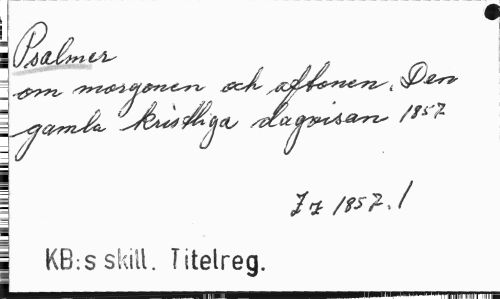 Psalmer
om morgonen och aftonen. Den
gamla kristliga dagvisan 1857
1857. 1
KB:s skill. Titelreg.